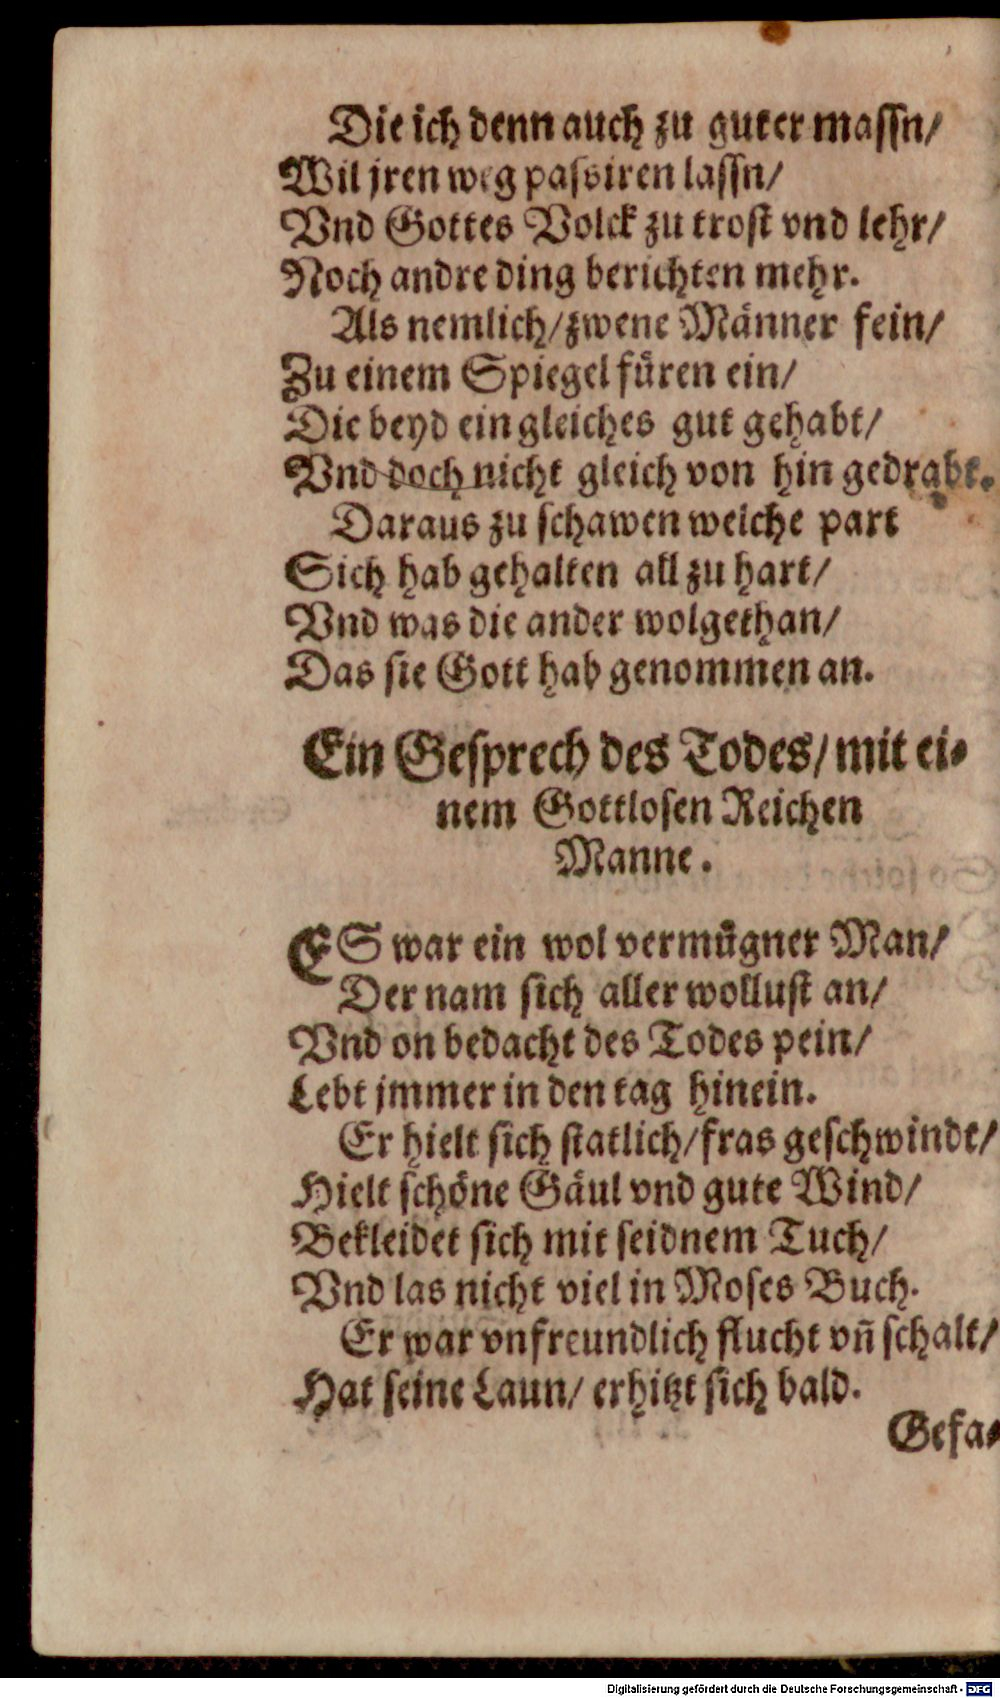 Die ich denn auch zu guter massn/
Wil jren weg passiren lassn/
Vnd Gottes Volck zu trost vnd lehr/
Noch andre ding berichten mehr.
Als nemlich/zwene Männer fein/
Zu einem Spiegel füren ein/
Die beyd ein gleiches gut gehabt/
Vnd doch nicht gleich von hin gedrabt.
Daraus zu schawen welche part
Sich hab gehalten all zu hart/
Vnd was die ander wolgethan/
Das sie Gott hab genommen an.
Ein Gesprech des Todes/mit ei-
nem Gottlosen Reichen
Manne.
ES war ein wol vermügner Man/
Der nam sich aller wollust an/
Vnd on bedacht des Todes pein/
Lebt jmmer in den tag hinein.
Er hielt sich statlich/fras geschwindt/
Hielt schöne Gäul vnd gute Wind/
Bekleidet sich mit seidnem Tuch/
Vnd las nicht viel in Moses Buch.
Er war vnfreundlich flucht vñ schalt/
Hat seine Laun/ erhitzt sich bald.
Gefa-
Digitalisierung gefördert durch die Deutsche Forschungsgemeinschaft - DFG